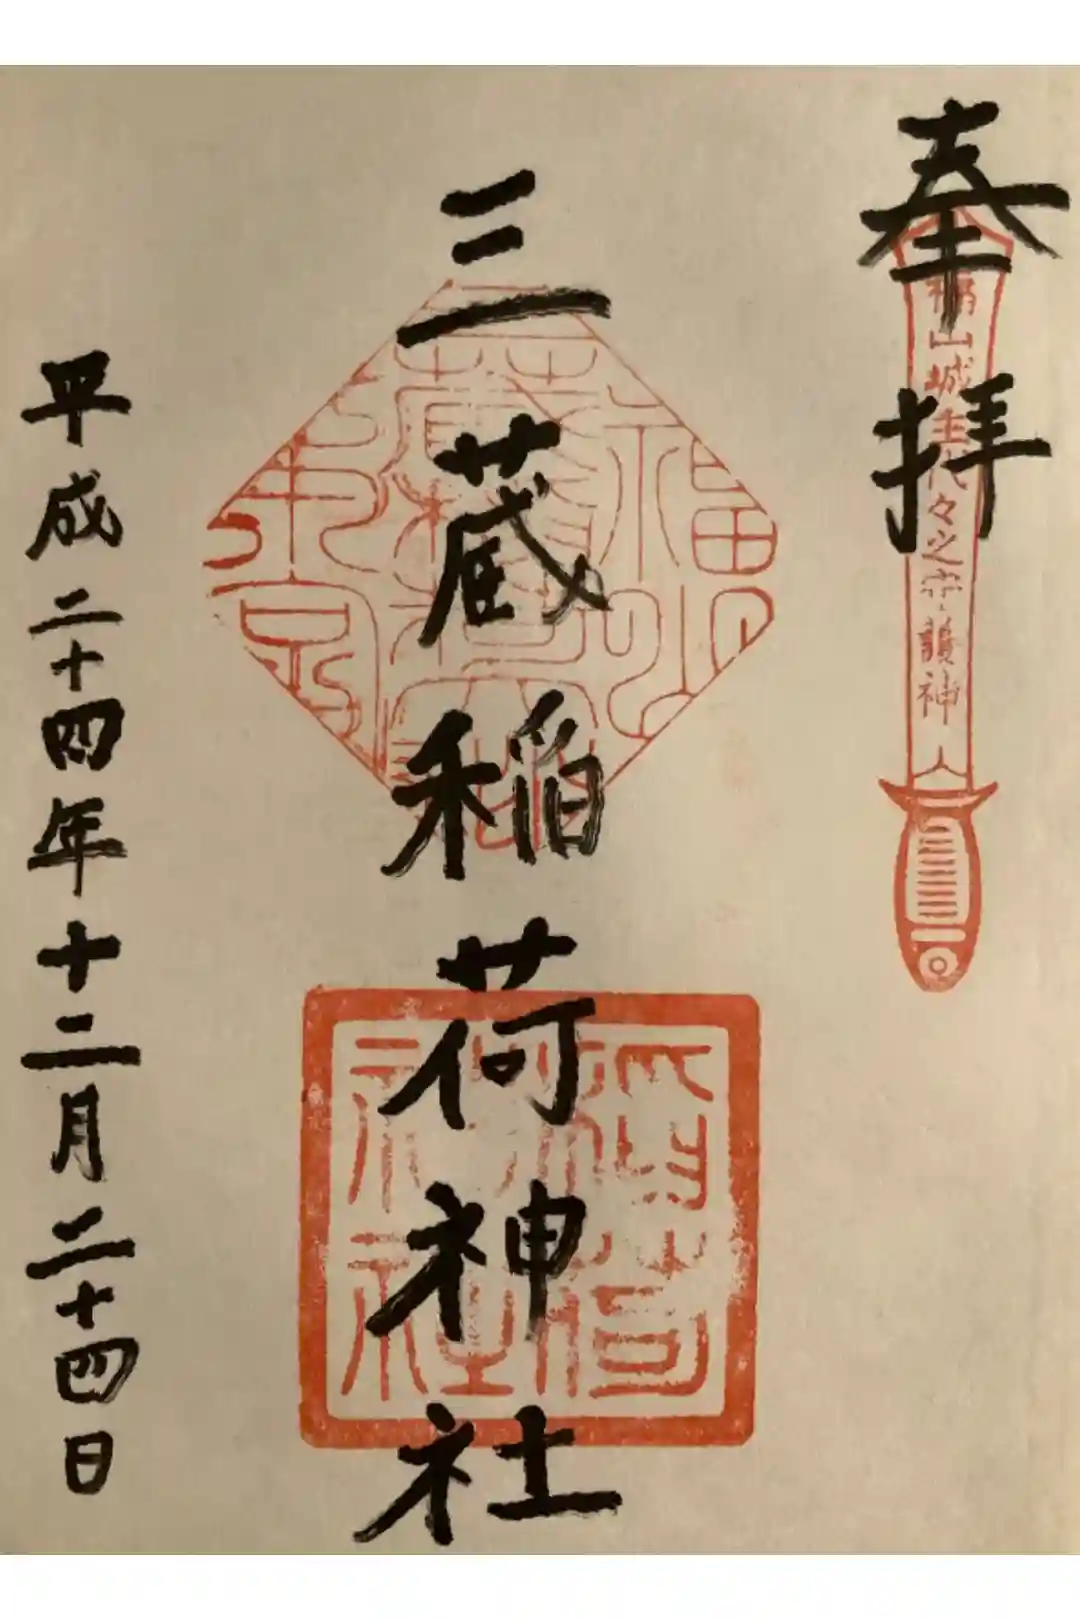 奉拝
福山城主代々之守護神
三蔵稲荷神社
稲荷
神社
平成二十四年十二月二十四日